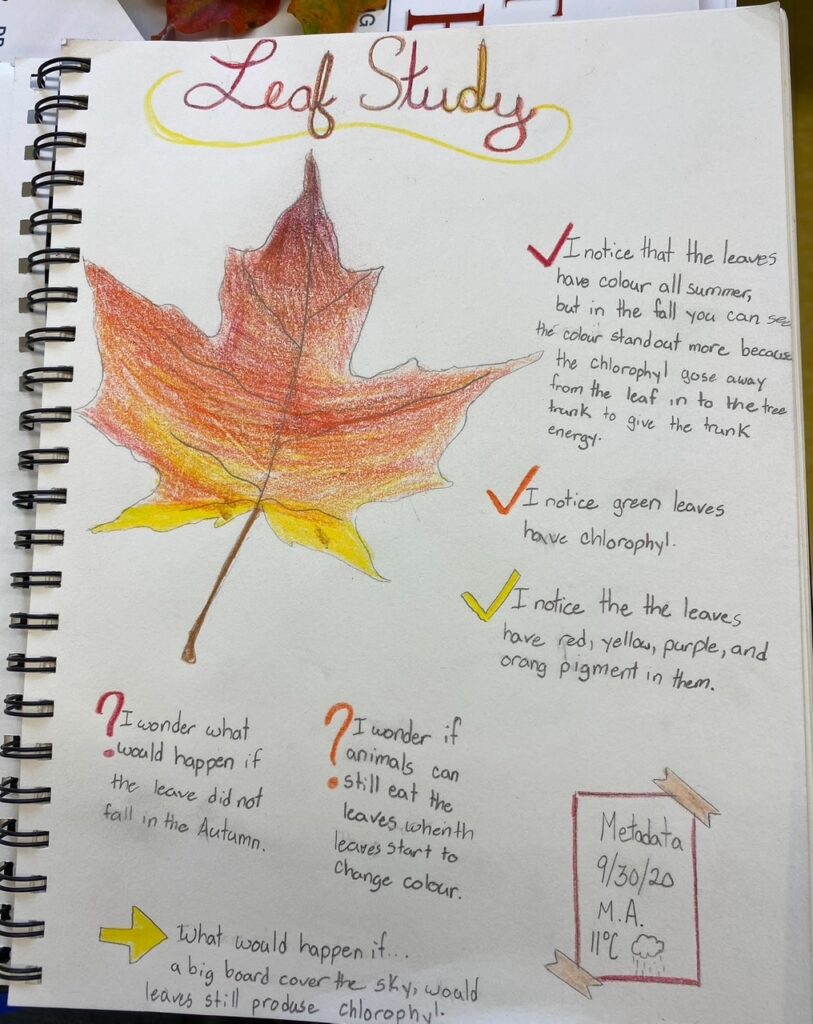 Leaf Study
I notice that the leaves
have colour all summer,
but in the fall you can see
the colour standout more because
the chlorophyl gose away
from the leaf in to the tree
trunk to give the trunk
energy.
I notice green leaves
have chlorophyl.
I notice the the leaves
have red, yellow, purple, and
orang pigment in them.
? I wonder what
would happen if
the leave did not
fall in the Autumn.
? I wonder if
animals can
still eat the
leaves when th
leaves start to
change colour.
What would happen if...
a big board cover the sky, would
leaves still produse chlorophyl.
Metadata
9/30/20
M.A.
11°C